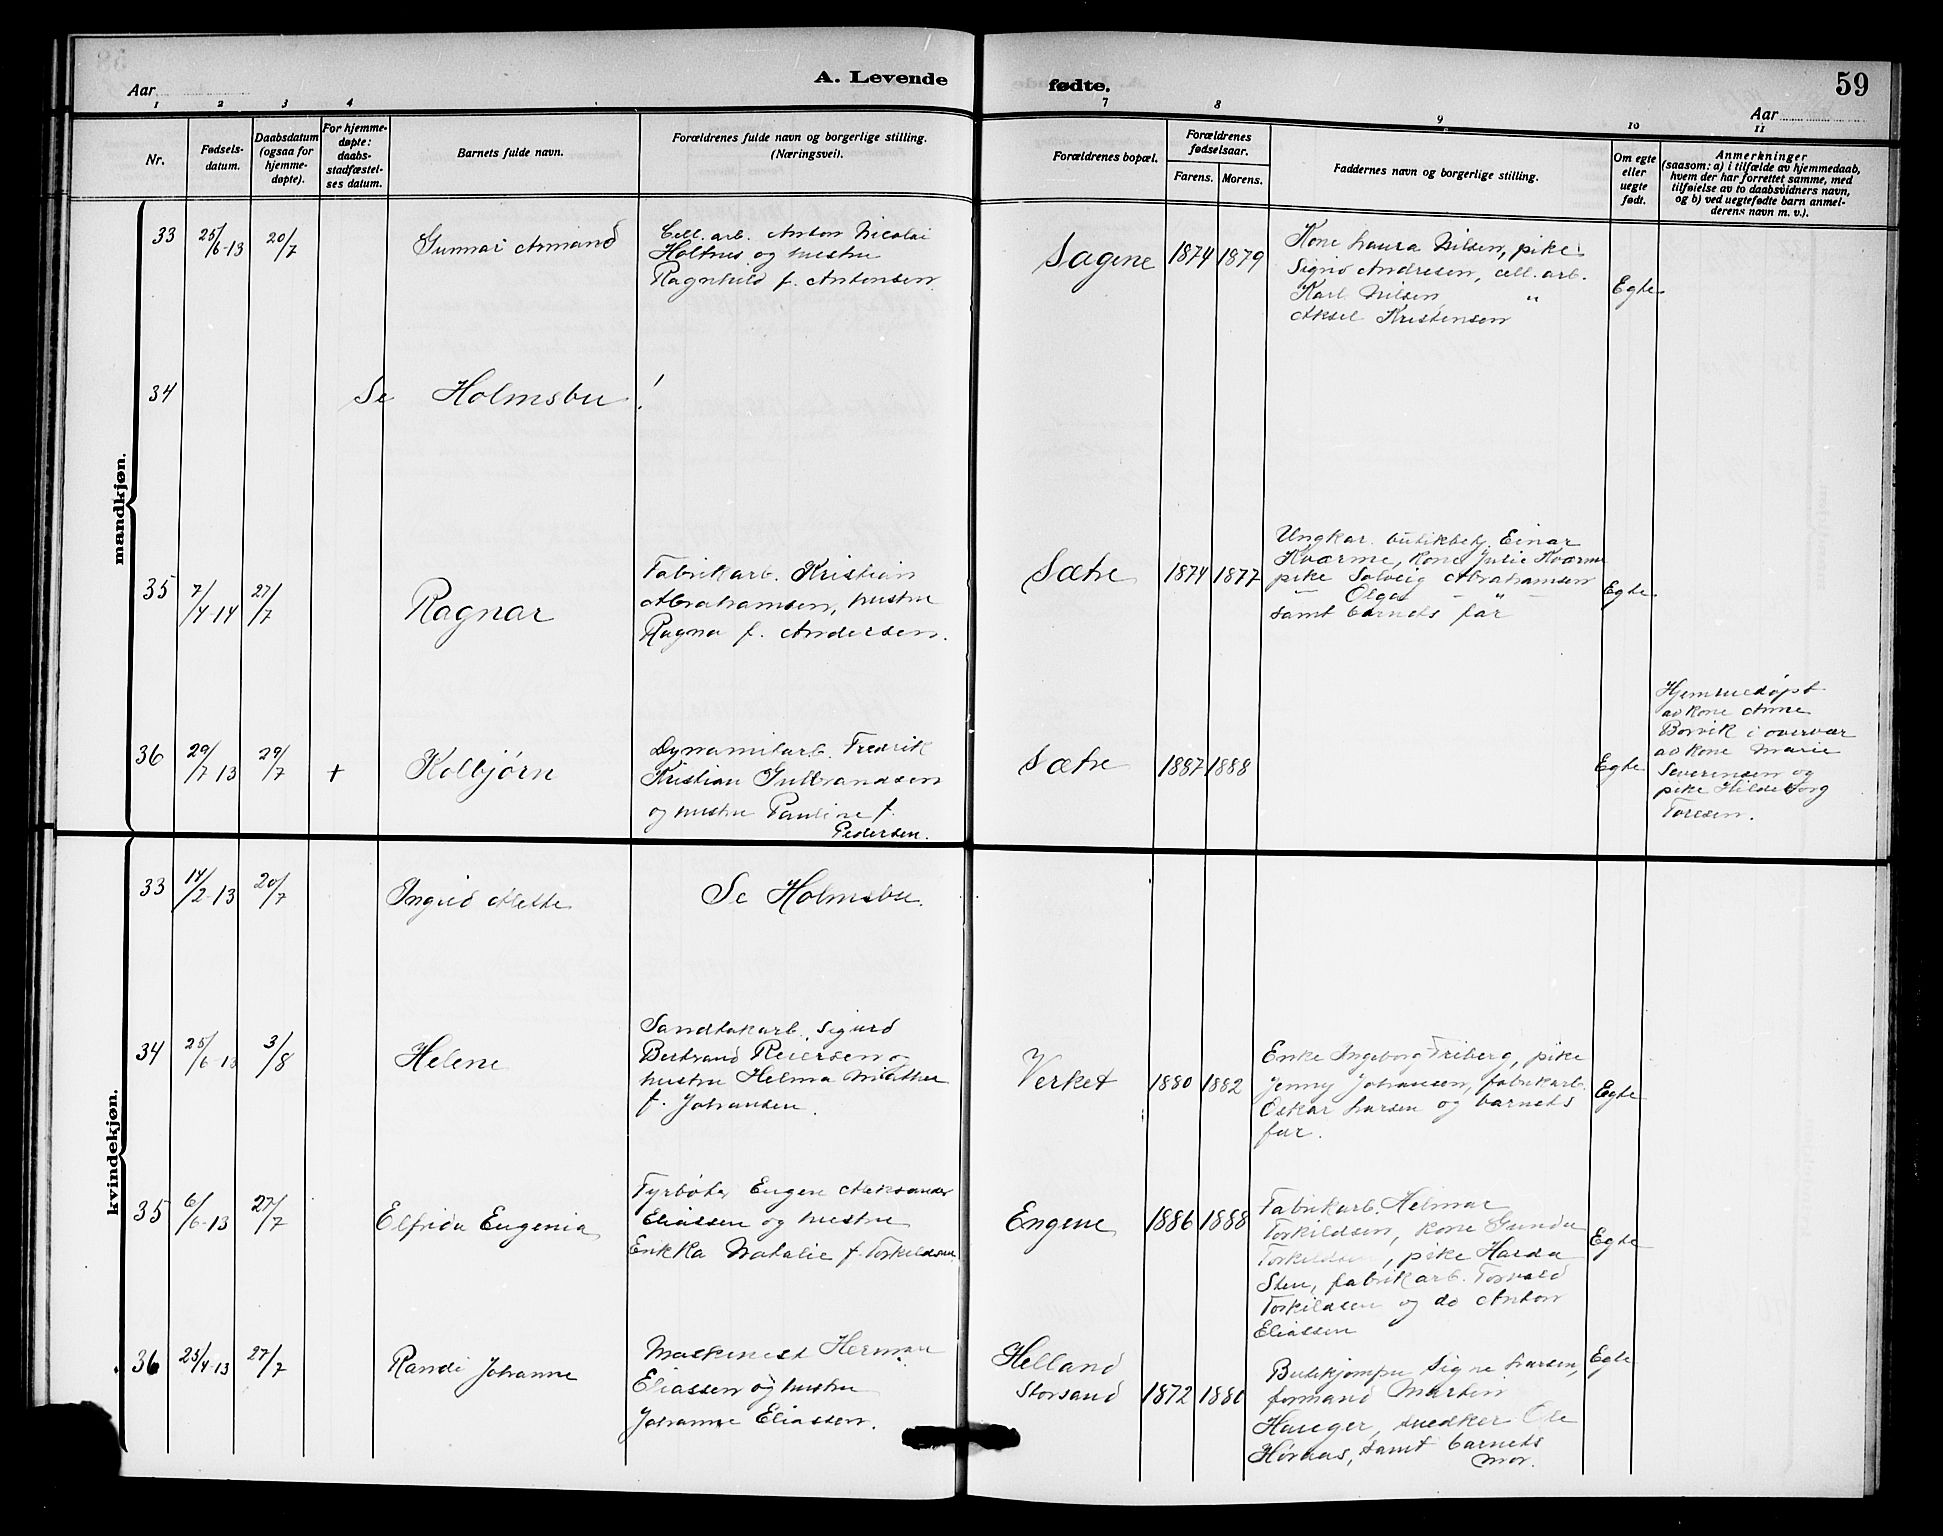 A. Levende
fødte.
59
Aar
Aar
1 2 3 4 7 8 9 10 11
Nr.
Fødsels-
datum.
Daabsdatum
(ogsaa for
hjemme-
døpte).
For hjemme-
døpte:
daabs-
stadfæstel-
ses datum.
Barnets fulde navn.
Forældrenes fulde navn og borgerlige stilling.
(Næringsvei).
Forældrenes bopæl.
Forældrenes
fødselsaar.
Farens. Morens.
Faddernes navn og borgerlige stilling.
Om egte
eller
uegte
født.
Anmerkninger
(saasom: a) i tilfælde av hjemmedaab,
hvem der har forrettet samme, med
tilføielse av to daabsvidners navn,
og b) ved uegtefødte barn anmel-
derens navn m. v.).
mandkjøn.
33 25/6-13 20/7
Gunnar Armand
Cell. arb. Anton Nicolai
Holtnes og hustru
Ragnhild f. Antonsen
Sagene 1874 1879
Kone Laura Nilsen, pike
Signe Andresen, cell. arb.
Karl Nilsen, "
Aksel Kristensen
Egte
34 Se Holmsbu!
35 7/4-14 27/7
Ragnar
Fabrikarb. Kristian
Abrahamsen, hustru
Ragna f. Andersen.
Sætre 1874 1877
Ungkar butikbetj. Einar
Kværme, kone Julie Kværme
pike Solveig Abrahamsen
— Olga — " —
samt barnets far
Egte
36 29/7 13 29/7 +
Kolbjørn
Dynamitarb. Fredrik
Kristian Gulbrandsen
og hustru Pauline f.
Pedersen.
Sætre 1887 1888
Egte
Hjemmedøpt
av kone Anne
Borvik i overvær
av kone Marie
Severinsen og
pike Hildeborg
Toresen.
kvindekjøn.
33 14/2-13 20/7
Ingrid Mette
Se Holmsbu.
34 25/6-13 3/8
Helene
Sandtakarb. Sigurd
Bertrand Reiersen og
hustru Helma
f. Johansen.
Verket 1880 1882
Enke Ingeborg Friberg, pike
Jenny Johansen, fabrikarb.
Oskar Larsen og barnets
far.
Egte
35 6/6-13 27/7
Elfrida Eugenia
Fyrbøter Eugen Aleksander
Eliassen og hustru
Erikka Natalie f. Torkildsen
Engene 1886 1888
Fabrikarb. Helmar
Torkildsen, kone Gunda
Torkildsen, pike Harda
Sten, fabrikarb. Torvald
Torkildsen og do Anton
Eliassen
Egte
36 25/4-13 27/7
Randi Johanne
Maskinist Herman
Eliassen og hustru
Johanne Eliassen.
Helland
Storsand 1872 1880
Butikjomfru Signe Larsen,
formand Martin
Hauger, snedker Ole
Hørnas, samt barnets
mor.
Egte